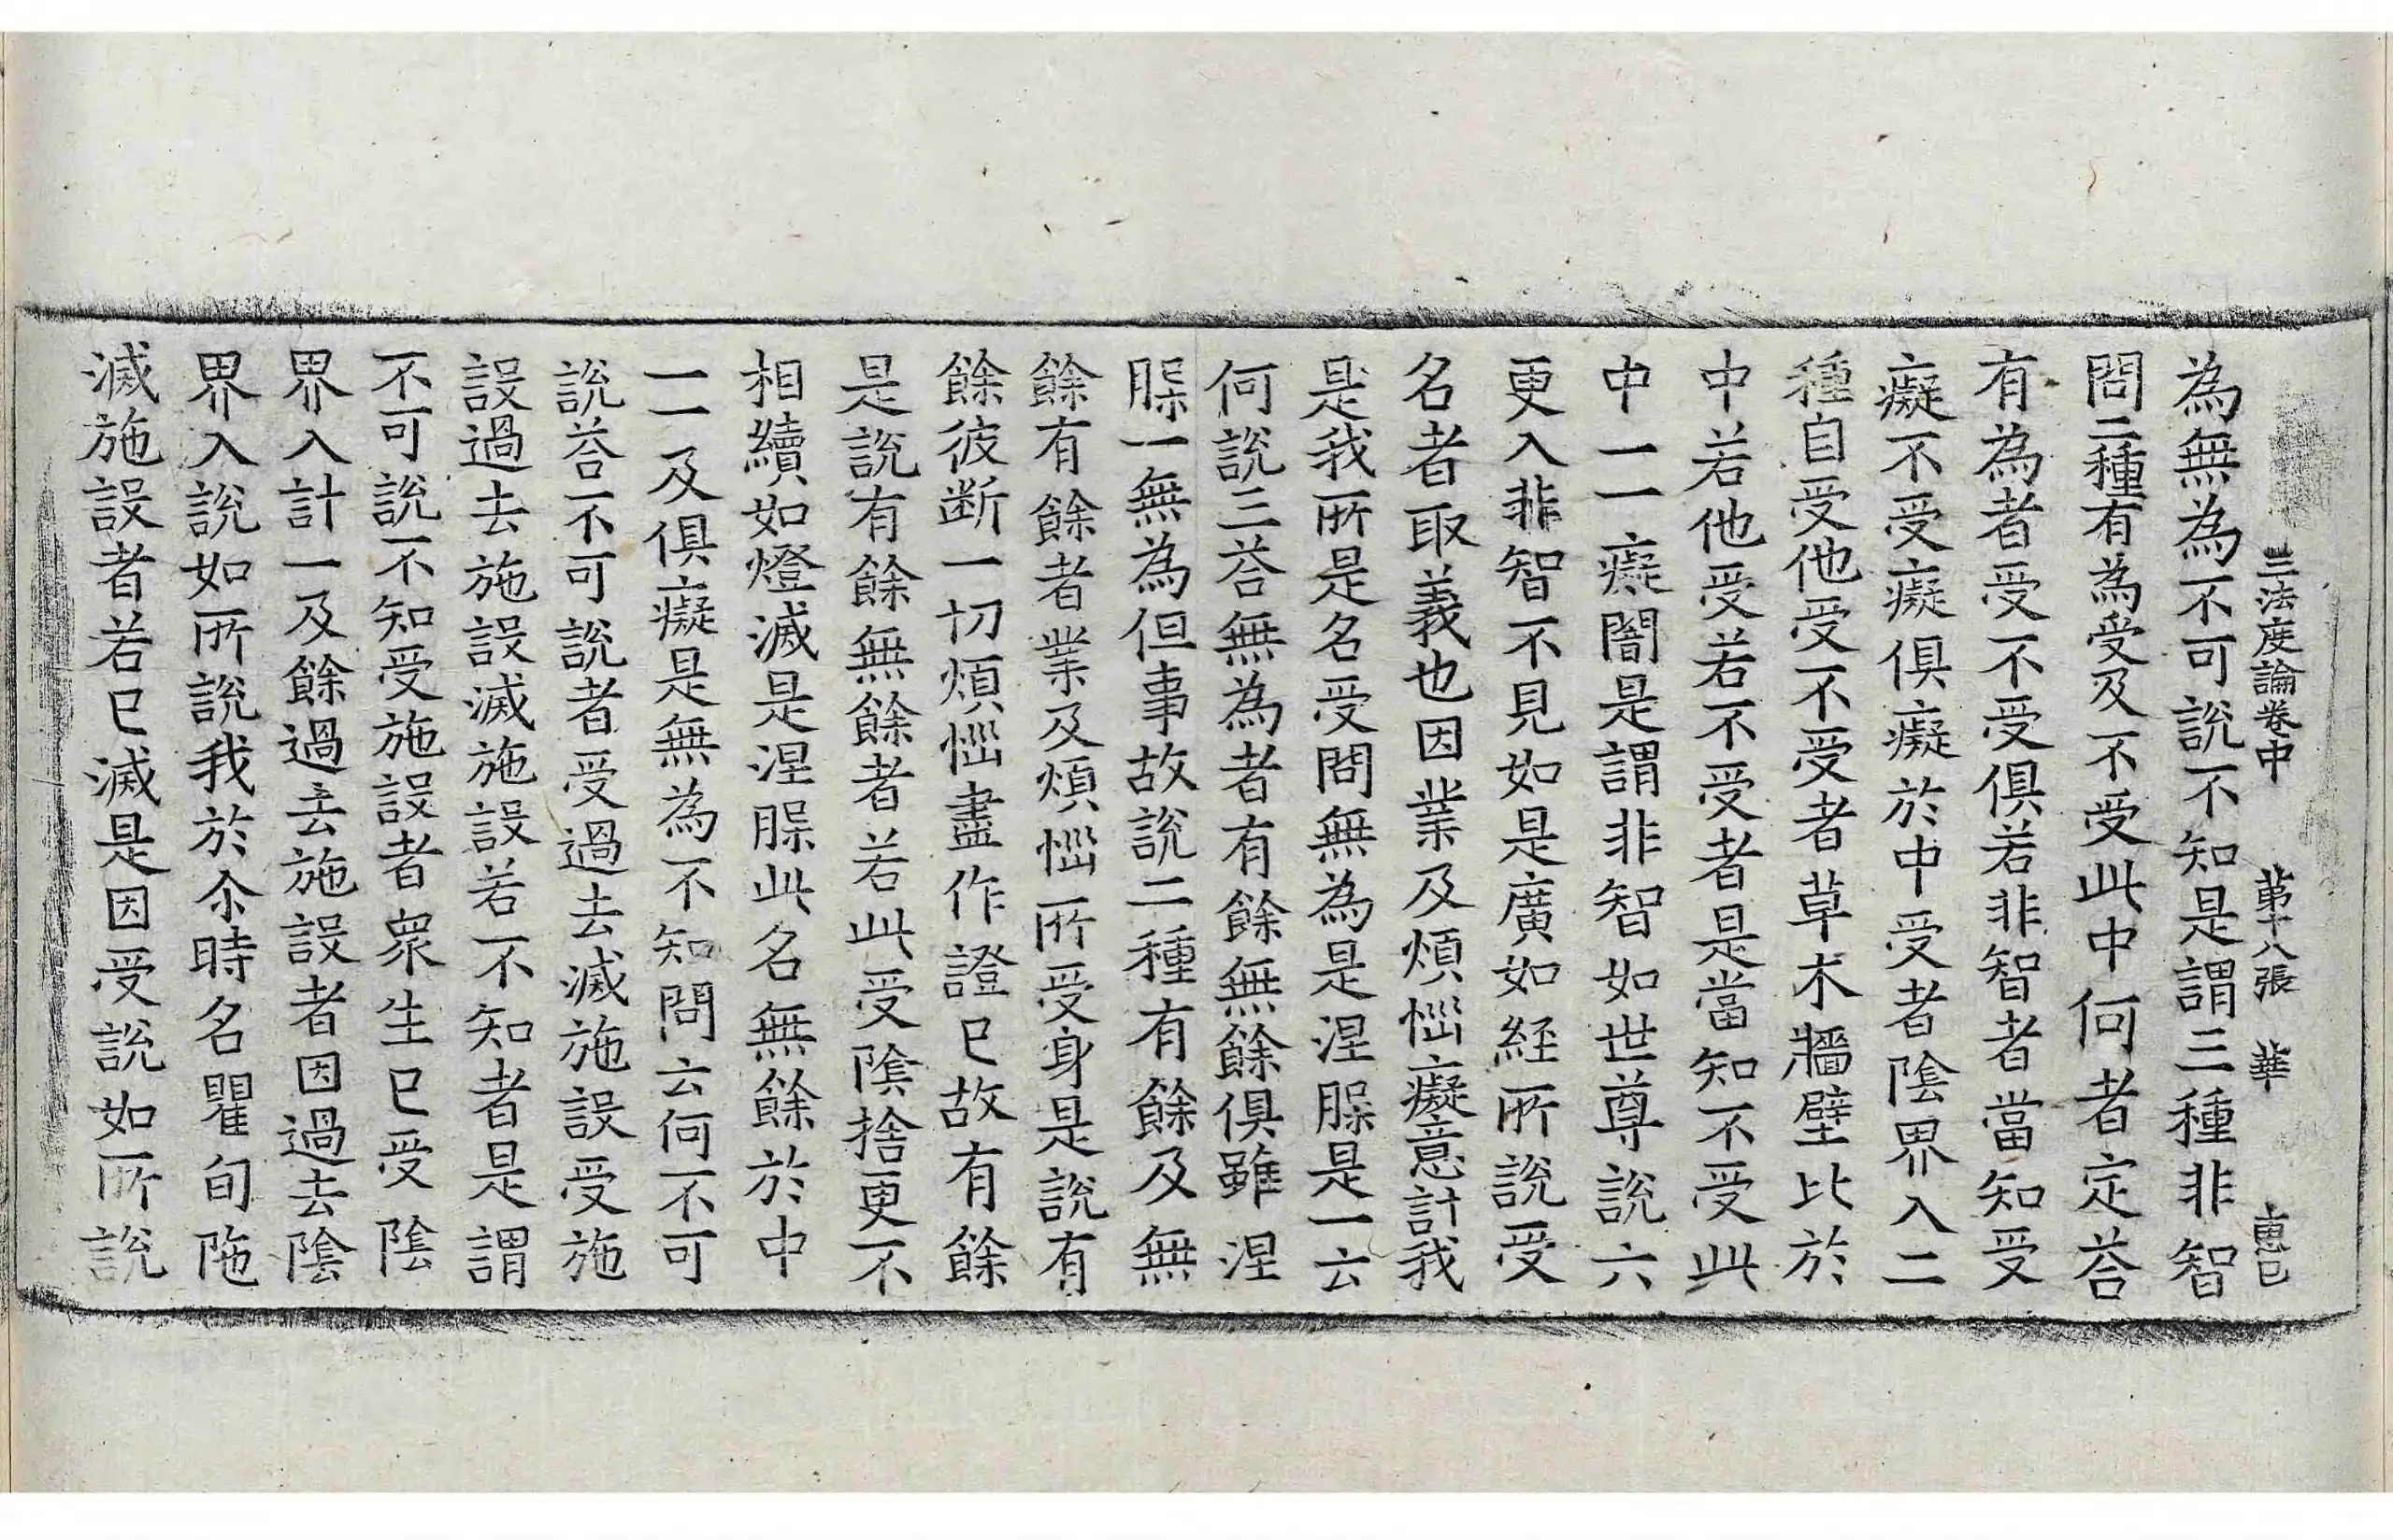 三法度論卷中 苐十八張 華 惠已
為無為不可說不知是謂三種非智
問二種有為受及不受此中何者定荅
有為者受不受俱若非智者當知受
癡不受癡俱癡於中受者陰界入二
種自受他受不受者草木牆壁比於
中若他受若不受者是當知不受此
中一一癡闇是謂非智如世尊說六
更入非智不見如是廣如經所說受
名者取義也因業及煩惱癡意計我
是我所是名受問無為是涅槃是一云
何說三荅無為者有餘無餘俱雖涅
槃一無為但事故說二種有餘及無
餘有餘者業及煩惱所受身是說有
餘彼断一切煩惱盡作證已故有餘
是說有餘無餘者若此受陰捨更不
相續如燈滅是涅槃此名無餘於中
一一及俱癡是無為不知問云何不可
說荅不可說者受過去滅施設受施
設過去施設滅施設若不知者是謂
不可說不知受施設者衆生已受陰
界入計一及餘過去施設者因過去陰
界入說如所說我於尒時名瞿旬陁
滅施設者若已滅是因受說如所說